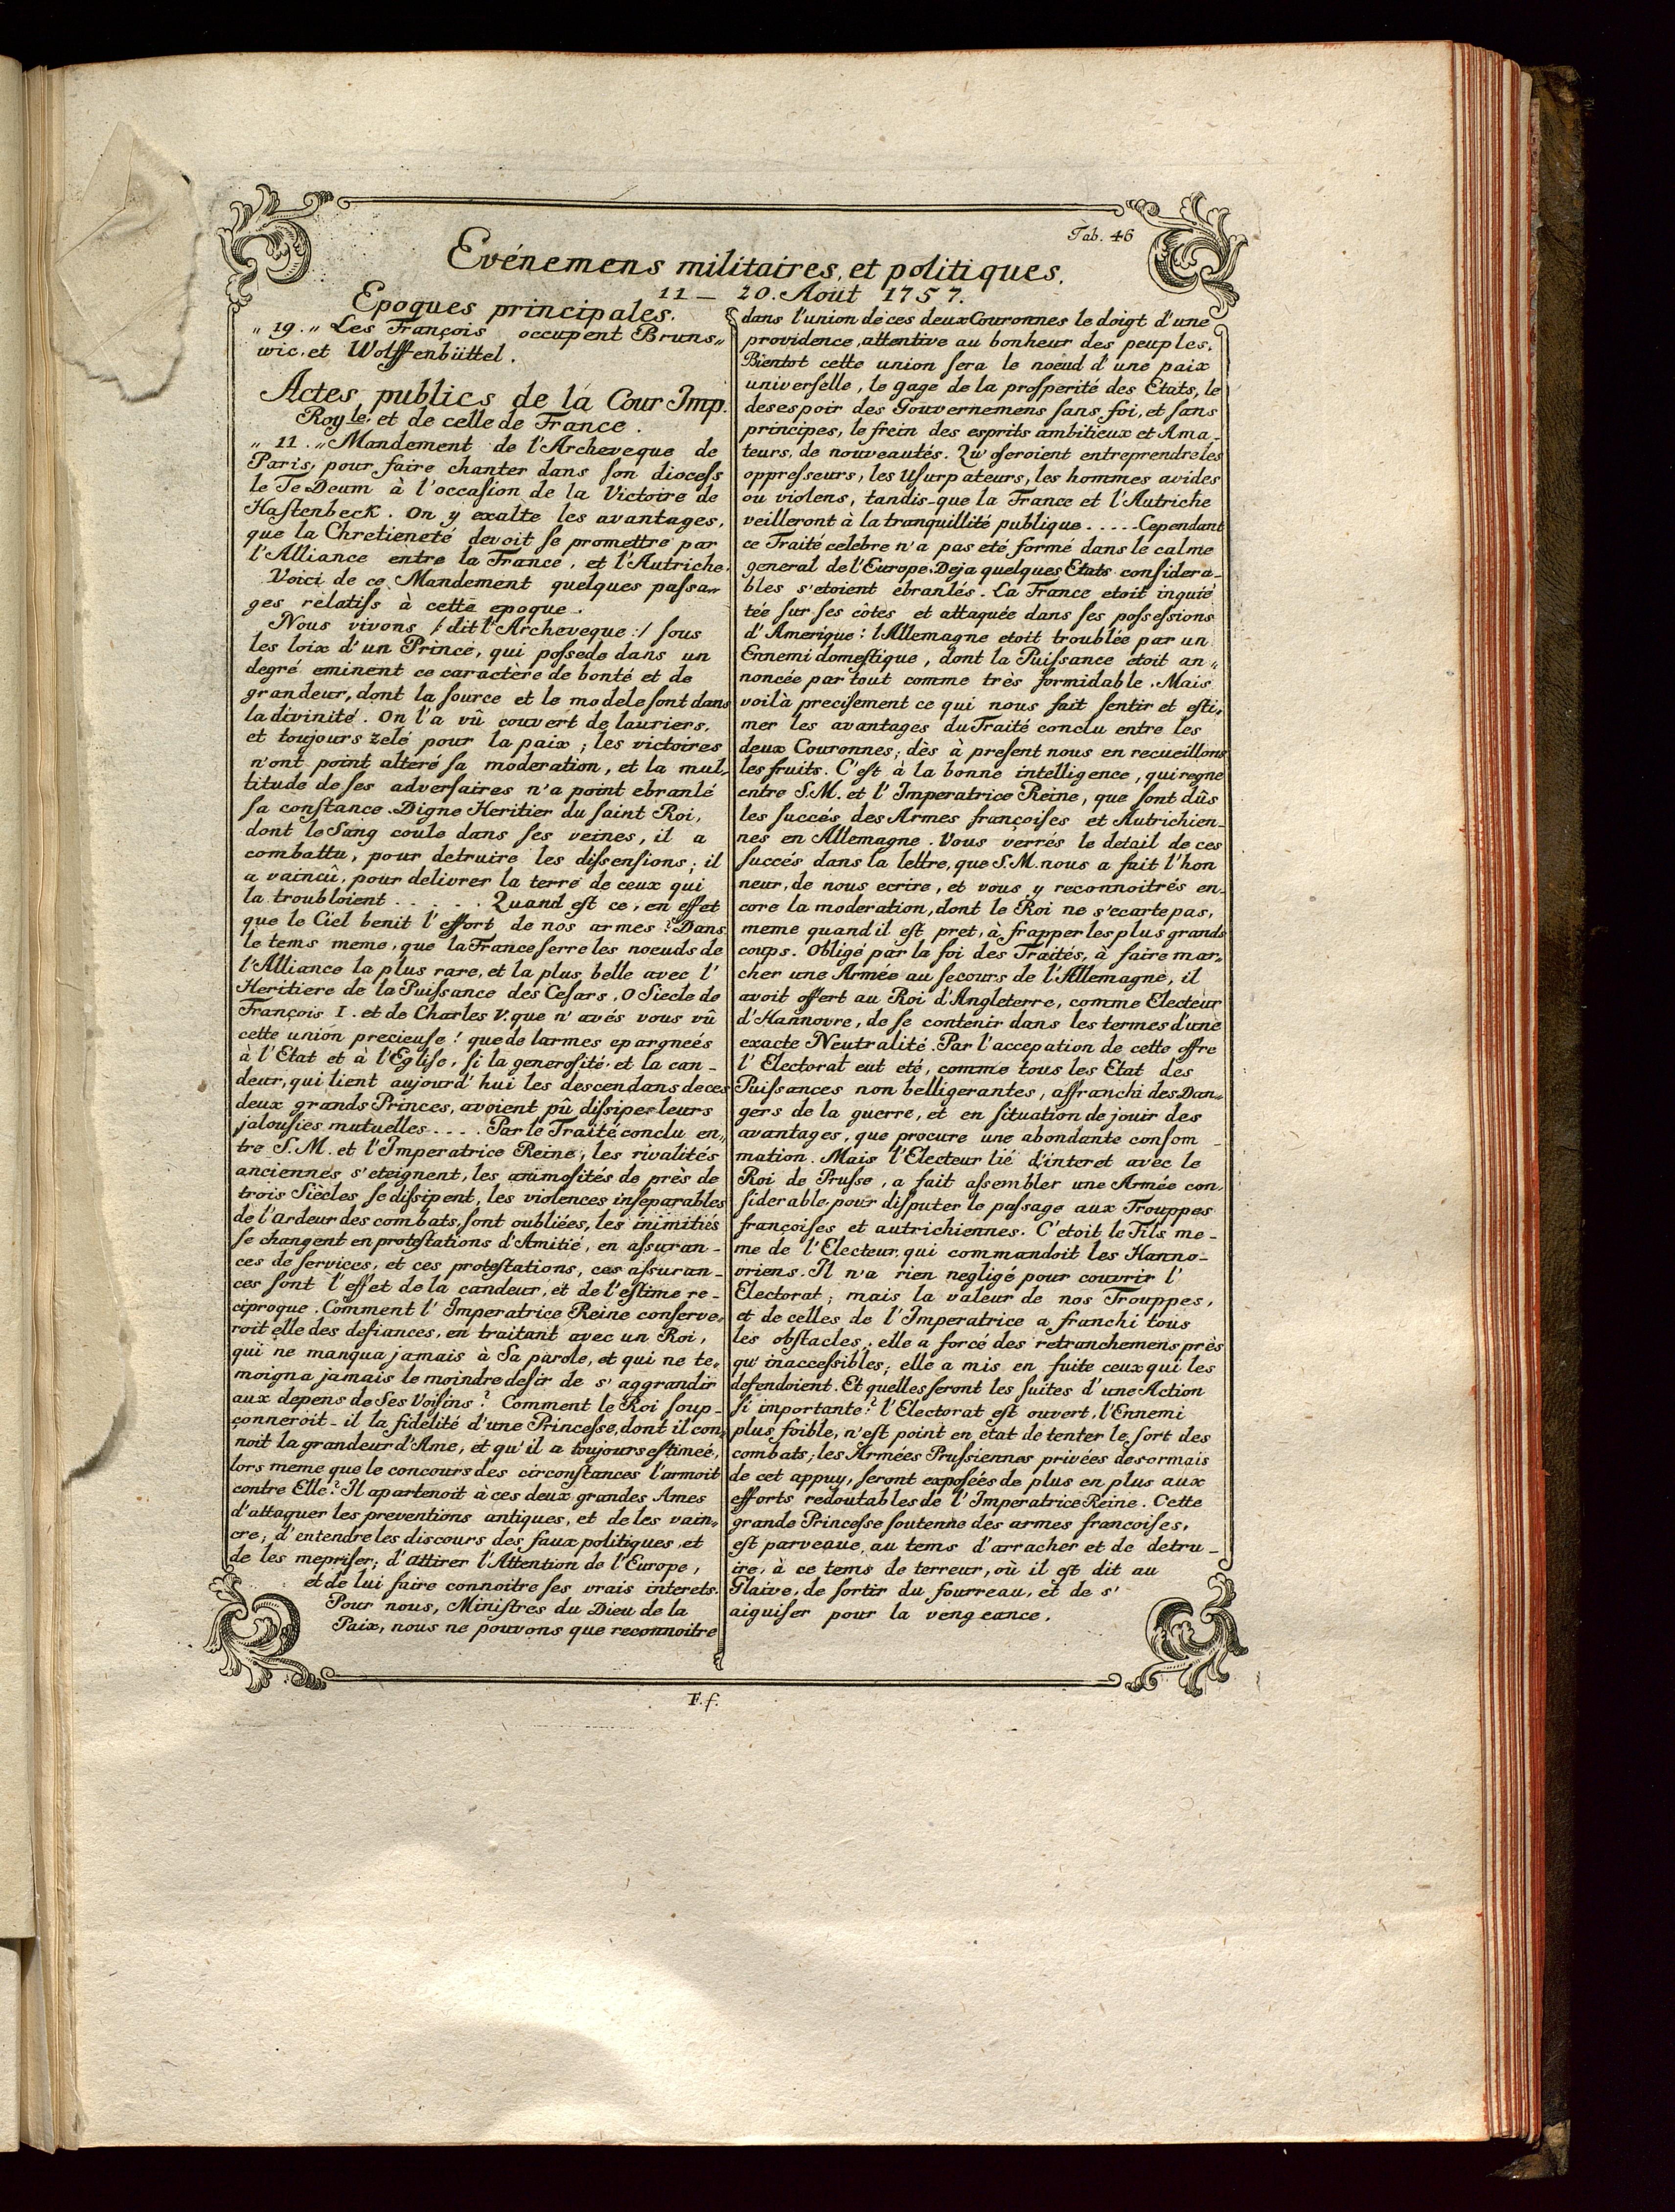 Tab. 46
Evénemens militaires, et politiques.
11 — 20. Aoüt 1757.
Epoques principales.
„ 19. „ Les François occupent Bruns„
wic, et Wolffenbüttel.
Actes publics de la Cour Imp.
Royle. et de celle de France.
„ 11. „ Mandement de l'Archeveque de
Paris, pour faire chanter dans ſon dioceſs
le Te Deum à l'occaſion de la Victoire de
Haſtenbeck. On y exalte les avantages,
que la Chretieneté devoit ſe promettre par
l'Alliance entre la France, et l'Autriche.
Voici de ce Mandement quelques paſsa„
ges rélatifs à cette epoque.
Nous vivons /: dit l'Archeveque :/ ſous
les loix d'un Prince, qui poſsede dans un
degré eminent ce caractère de bonté et de
grandeur, dont la ſource et le modele ſont dans
la divinité. On l'a vû couvert de lauriers,
et toujours zelé pour la paix; les victoires
n'ont point alteré ſa moderation, et la mul„
titude de ſes adverſaires n'a point ebranlé
ſa conſtance. Digne Heritier du ſaint Roi,
dont le Sang coule dans ſes veines, il a
combattu, pour detruire les diſsenſions; il
a vaincu, pour delivrer la terre de ceux qui
la troubloient . . . . . Quand eſt ce, en effet
que le Ciel benit l'effort de nos armes? Dans
le tems meme, que la France ſerre les noeuds de
l'Alliance la plus rare, et la plus belle avec l'
Heritiere de la Puiſsance des Ceſars. O Siecle de
François I. et de Charles V. que n'avés vous vû
cette union precieuse! que de larmes epargneés
à l'Etat et à l'Egliſe, ſi la generoſité, et la can_
deur, qui lient aujourd'hui les descendans de ces
deux grands Princes, avoient pû diſsiper leurs
jalouſies mutuelles . . . . Par le Traité conclu en„
tre S.M. et l'Imperatrice Reine, les rivalités
anciennes s'eteignent, les animoſités de près de
trois Siècles ſe diſsipent, les violences inſeparables
de l'ardeur des combats, ſont oubliées, les inimitiés
ſe changent en proteſtations d'Amitié, en aſsuran_
ces de ſervices, et ces proteſtations, ces aſsuran_
ces ſont l'effet de la candeur, et de l'eſtime re_
ciproque. Comment l'Imperatrice Reine conſerve„
roit elle des defiances, en traitant avec un Roi,
qui ne manqua jamais à Sa parole, et qui ne te„
moigna jamais le moindre deſir de s'aggrandir
aux depens de Ses Voiſins? Comment le Roi ſoup_
çonneroit_il la fidelité d'une Princeſse, dont il con„
noit la grandeur d'Ame, et qu'il a toujours eſtimeé,
lors meme que le concours des circonſtances l'armoit
contre Elle? Il apartenoit à ces deux grandes Ames
d'attaquer les preventions antiques, et de les vain„
cre; d'entendre les discours des faux politiques, et
de les mepriſer; d'attirer l'Attention de l'Europe,
et de lui faire connoitre ſes vrais interets.
Pour nous, Miniſtres du Dieu de la
Paix, nous ne pouvons que reconnoitre
dans l'union de ces deux Couronnes le doigt d'une
providence, attentive au bonheur des peuples.
Bientot cette union ſera le noeud d'une paix
univerſelle, le gage de la proſperité des Etats, le
desespoir des Gouvernemens ſans foi, et ſans
principes, le frein des esprits ambitieux et Ama_
teurs, de nouveautés. Qu'oſeroient entreprendre les
oppreſseurs, les Uſurpateurs, les hommes avides
ou violens, tandis_que la France et l'Autriche
veilleront à la tranquillité publique . . . . . Cependant
ce Traité celebre n'a pas eté formé dans le calme
general de l'Europe. Deja quelques Etats conſidera_
bles s'etoient ébranlés. La France etoit inquié
tée ſur ſes côtes et attaquée dans ſes poſseſsions
d'Amerique: l'Allemagne etoit troublée par un
Ennemi domeſtique, dont la Puiſsance etoit an„
noncée par tout comme très formidable. Mais
voilà preciſement ce qui nous fait ſentir et eſti„
mer les avantages du Traité conclu entre les
deux Couronnes; dès à preſent nous en recueillons
les fruits. C'eſt à la bonne intelligence, qui regne
entre S.M. et l'Imperatrice Reine, que ſont dûs
les ſuccés des Armes françoiſes et Autrichien_
nes en Allemagne. Vous verrés le detail de ces
ſuccés dans la lettre, que S.M. nous a fait l'hon
neur, de nous ecrire, et vous y reconnoitrés en_
core la moderation, dont le Roi ne s'ecarte pas,
meme quand il eſt pret, à frapper les plus grands
coups. Obligé par la foi des Traités, à faire mar„
cher une Armée au ſecours de l'Allemagne, il
avoit offert au Roi d'Angleterre, comme Electeur
d'Hannovre, de ſe contenir dans les termes d'une
exacte Neutralité. Par l'accepation de cette offre
l'Electorat eut eté, comme tous les Etat des
Puiſsances non belligerantes, affranchi des Dan„
gers de la guerre, et en ſituation de jouir des
avantages, que procure une abondante conſom_
mation. Mais l'Electeur lié d'interet avec le
Roi de Prusse, a fait aſsembler une Armée con„
ſiderable pour diſputer le paſsage aux Trouppes
françoiſes et autrichiennes. C'etoit le Fils me_
me de l'Electeur, qui commandoit les Hanno_
vriens. Il n'a rien negligé pour couvrir l'
Electorat; mais la valeur de nos Trouppes,
et de celles de l'Imperatrice a franchi tous
les obſtacles; elle a forcé des retranchemens près
qu'inacceſsibles; elle a mis en fuite ceux qui les
defendoient. Et quelles ſeront les ſuites d'une Action
ſi importante? l'Electorat eſt ouvert, l'Ennemi
plus foible, n'eſt point en etat de tenter le ſort des
combats; les Armées Pruſsiennes privées desormais
de cet appuy, ſeront expoſéés de plus en plus aux
efforts redoutables de l'Imperatrice Reine. Cette
grande Princeſse ſoutenue des armes francoiſes,
eſt parvenue, au tems d'arracher et de detru_
ire, à ce tems de terreur, où il eſt dit au
Glaive, de ſortir du fourreau, et de s'
aiguiſer pour la vengeance.
F.f.